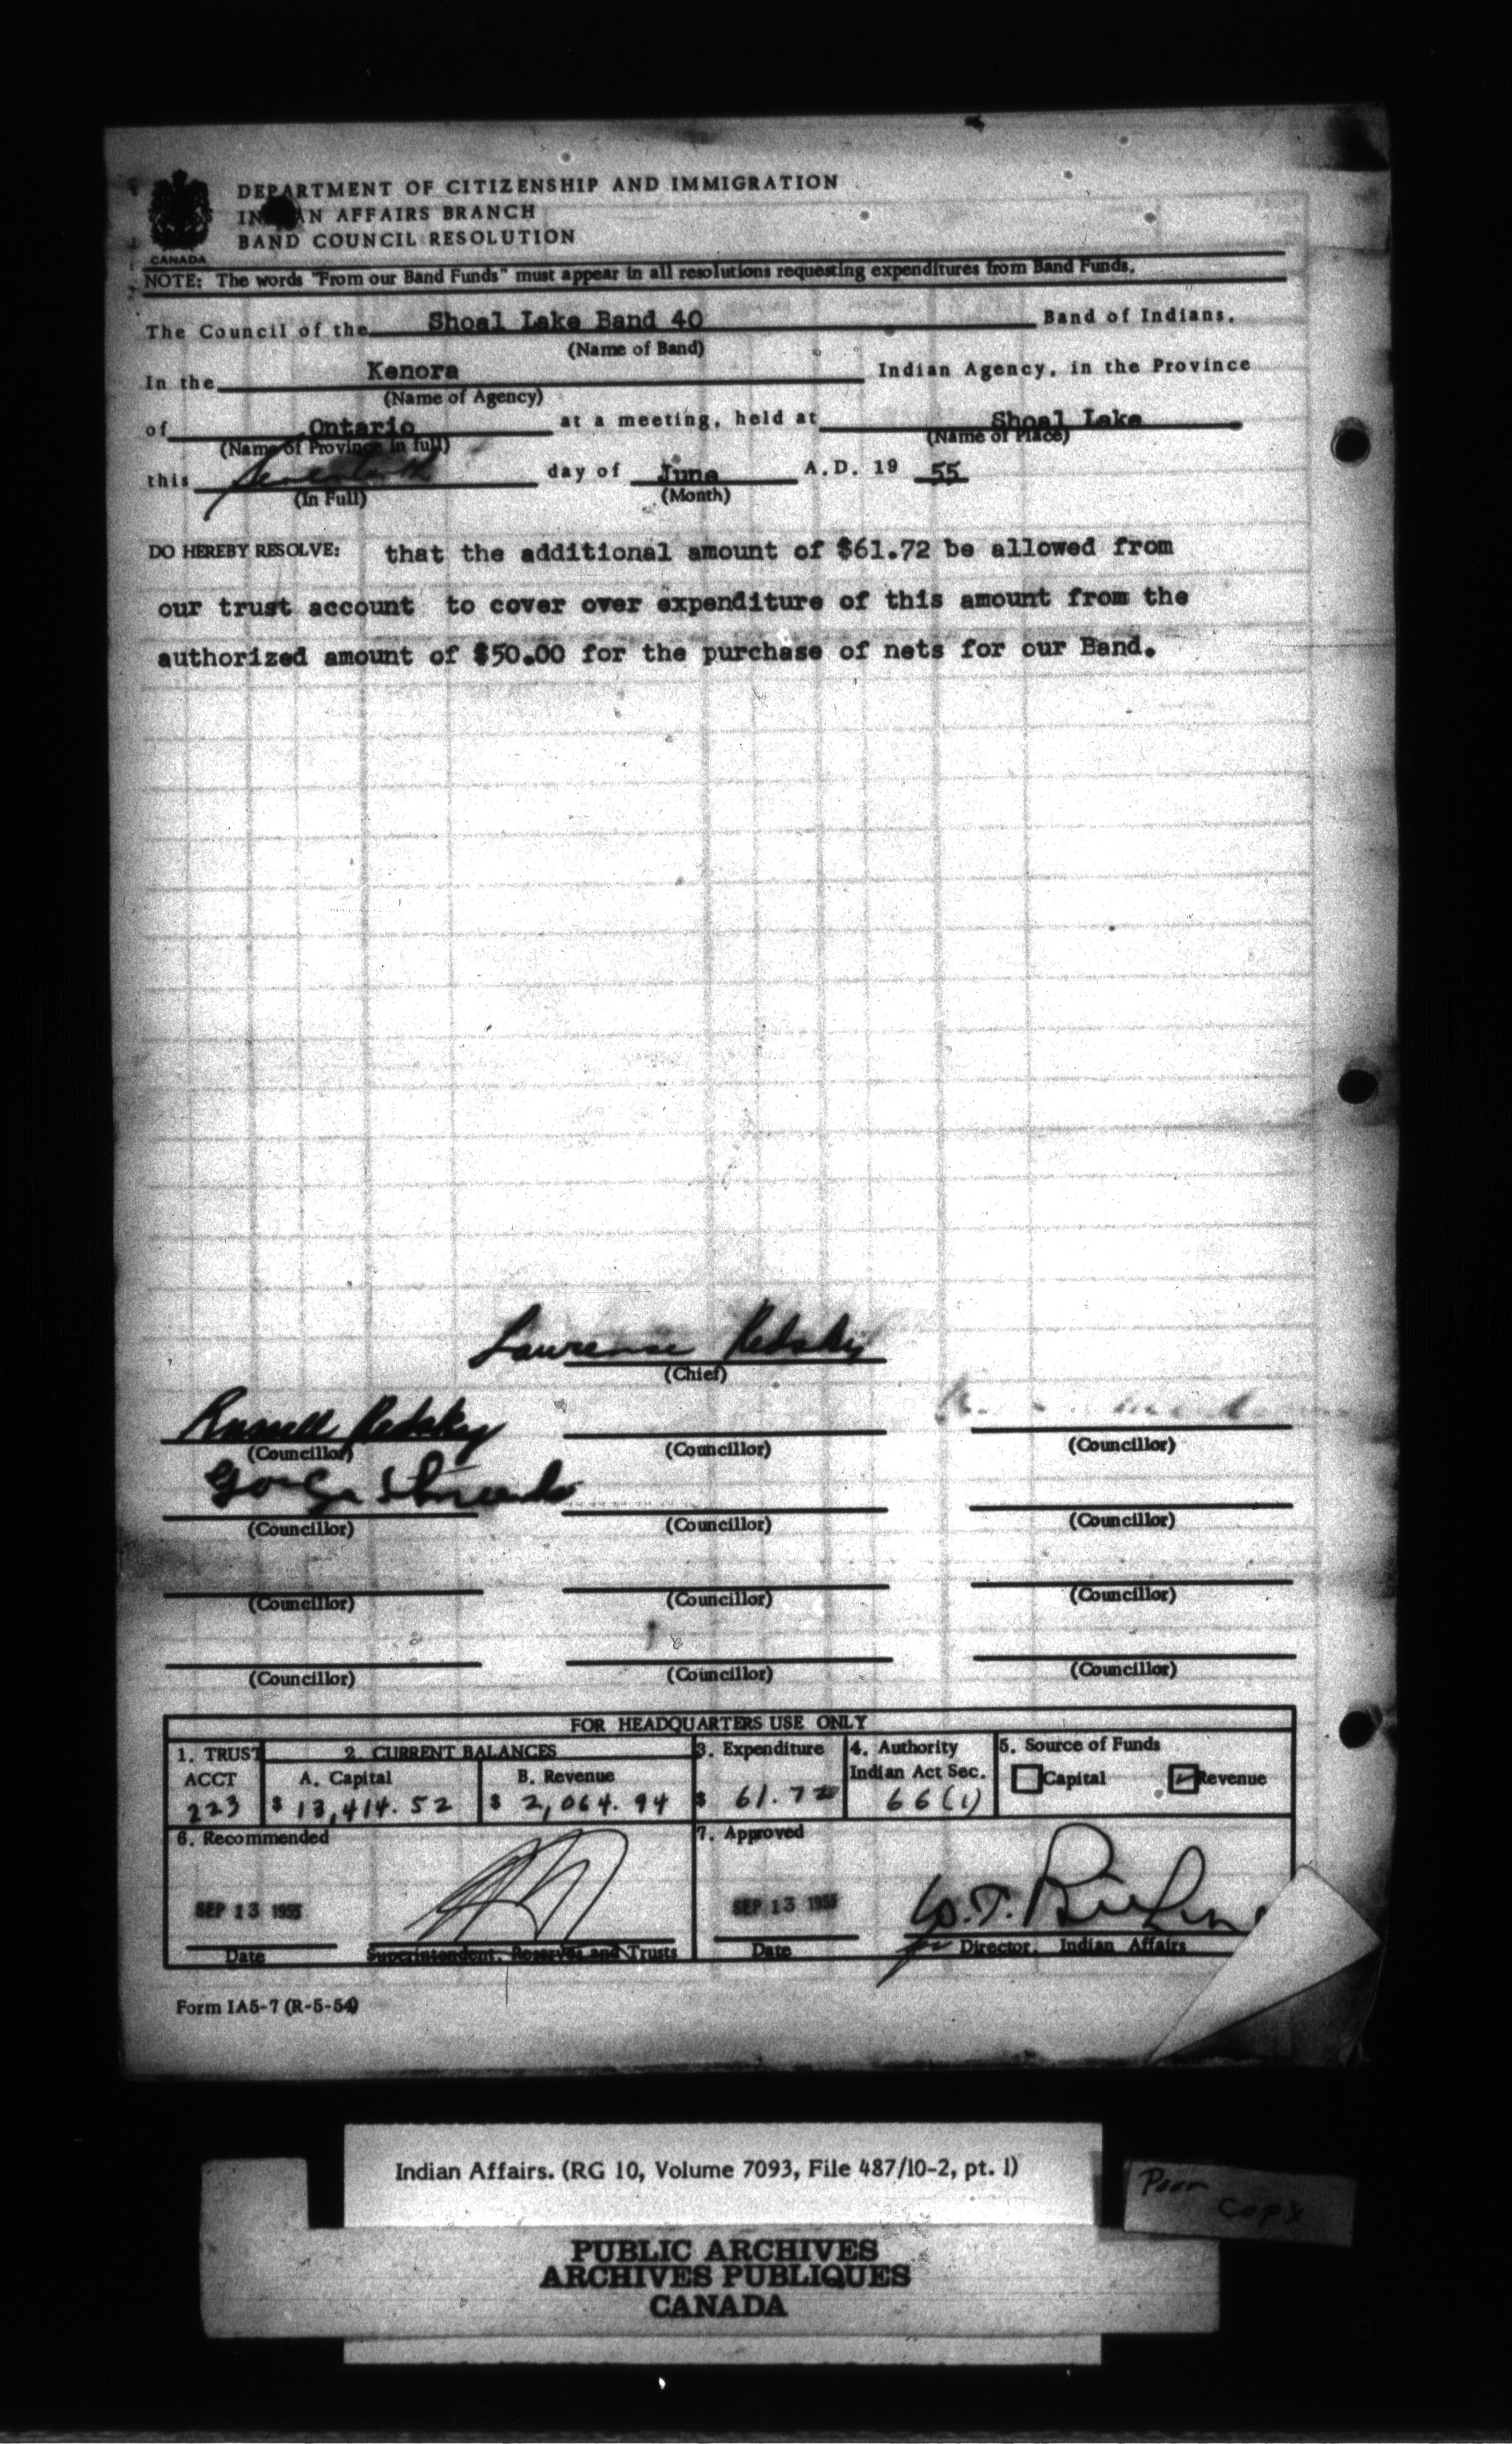 DEPARTMENT OF CITIZENSHIP AND IMMIGRATION
INDIAN AFFAIRS BRANCH
BAND COUNCIL RESOLUTION
CANADA
NOTE: The words "From our Band Funds" must appear in all resolutions requesting expenditures from Band Funds.
The Council of the Shoal Lake Band 40 Band of Indians.
(Name of Band)
In the Kenora Indian Agency, in the Province
(Name of Agency)
of Ontario at a meeting, held at Shoal Lake
(Name of Province in full) (Name of Place)
this day of June A.D. 19 55
(In Full) (Month)
DO HEREBY RESOLVE: that the additional amount of $61.72 be allowed from
our trust account to cover over expenditure of this amount from the
authorized amount of $50.00 for the purchase of nets for our Band.
Lawrence Redsky
(Chief)
Russell Redsky
(Councillor) (Councillor) (Councillor)
(Councillor) (Councillor) (Councillor)
(Councillor) (Councillor) (Councillor)
(Councillor) (Councillor) (Councillor)
FOR HEADQUARTERS USE ONLY
1. TRUST 2. CURRENT BALANCES 3. Expenditure 4. Authority 5. Source of Funds
ACCT A. Capital B. Revenue Indian Act Sec. Capital Revenue
223 $ 13,414.52 $ 2,064.94 $ 61.72 66(1)
6. Recommended 7. Approved
SEP 13 1955 SEP 13 1955 W.T.
Date Superintendent, Reserves and Trusts Date for Director, Indian Affairs
Form IA5-7 (R-5-54)
Indian Affairs. (RG 10, Volume 7093, File 487/10-2, pt. 1)
Poor
Copy
PUBLIC ARCHIVES
ARCHIVES PUBLIQUES
CANADA